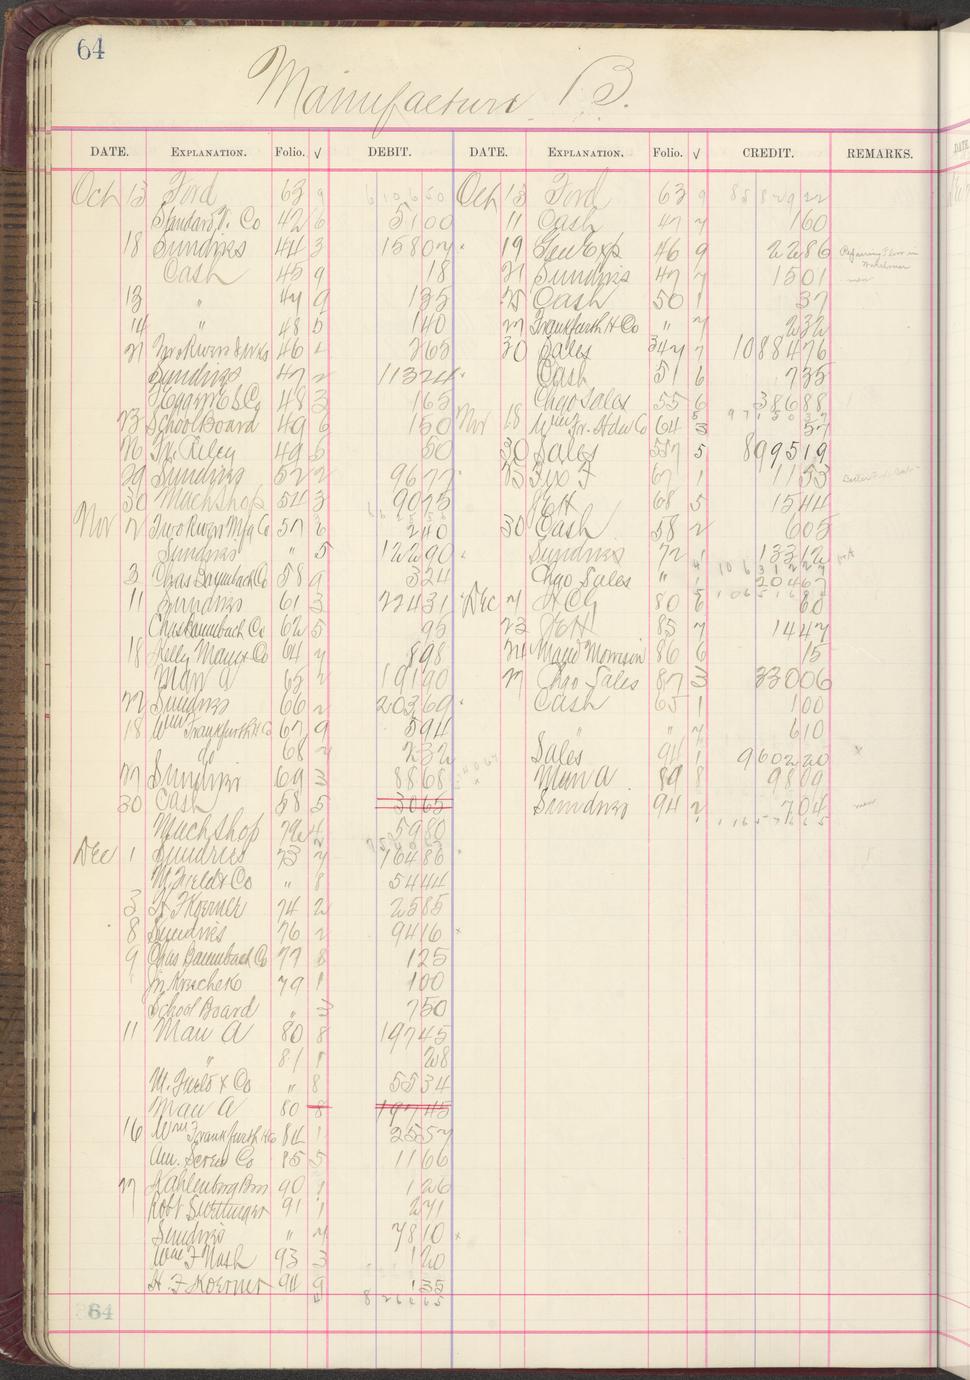 64
Manufacture B.
DATE. EXPLANATION. Folio. √ DEBIT. DATE. EXPLANATION. Folio. √ CREDIT. REMARKS.
Oct 13 Ford 63 9 Oct 13 Ford 63 9
Standard Co 42 6 5100 11 Cash 47 7 160
18 Sundries 44 3 15807 19 Gen Exp 46 9 2286
Cash 45 9 18 21 Sundries 47 7 1501
13 " 47 9 135 25 Cash 50 1 37
14 " 48 5 140 27 Frankfurth H Co " 7 232
21 46 265 30 Sales 347 7 1088476
Sundries 47 2 11324 Cash 51 6 735
48 3 165 Chgo Sales 55 6 38688
23 School Board 49 6 150 Nov 18 Hdw Co 64 3 57
26 Riley 49 5 50 30 Sales 557 5 899519
29 Sundries 52 2 9677 25 67 1 1153
30 Mach Shop 54 3 9075 68 5 1544
Nov 2 Two Rivers Mfg Co 57 6 240 30 Cash 58 2 605
Sundries " 5 12290 Sundries 72 1 13312
3 Chas Baumbach Co 58 9 324 Chgo Sales " 20467
11 Sundries 61 3 22431 Dec 7 80 6 60
Chas Baumbach Co 62 5 95 23 85 7 1447
18 Kelly Maus & Co 64 7 898 24 Maud Morrison 86 6 15
Man A 65 2 19190 27 Chgo Sales 87 3 33006
22 Sundries 66 2 20369 Cash 65 1 100
18 Wm Frankfurth H Co 67 9 594 " 7 610
do 68 7 232 Sales 94 1 960220
27 Sundries 69 3 8868 Man A 89 8 9809
30 Cash 58 5 3065 Sundries 94 2 704
Mach Shop 72 5980
Dec 1 Sundries 73 7 76486
M. Field & Co " 8 5444
3 H F Koerner 74 2 2585
8 Sundries 76 2 9416
9 Chas Baumbach Co 77 8 125
79 1 100
School Board " 3 750
11 Man A 80 8 19745
" 81 1 28
M. Field & Co " 8 5534
Man A 80 8 19745
16 Wm Frankfurth H Co 84 1 2557
Am. Screw Co 85 5 1166
27 Kahlenberg Bros 90 1 126
Robt 91 1 271
Sundries " 7 7810
Wm F Nash 93 3 120
H. F Koerner 94 9 135
64